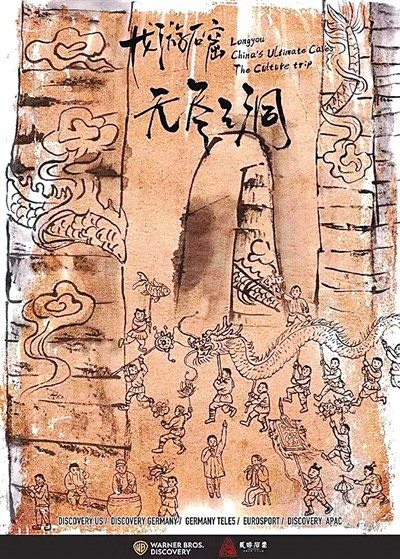 龙游石窟
Longyou
China's Ultimate Caves
The Culture trip
无尽之洞
DISCOVERY US / DISCOVERY GERMANY / GERMANY TELE5 / EUROSPORT / DISCOVERY APAC
WARNER BROS.
DISCOVERY